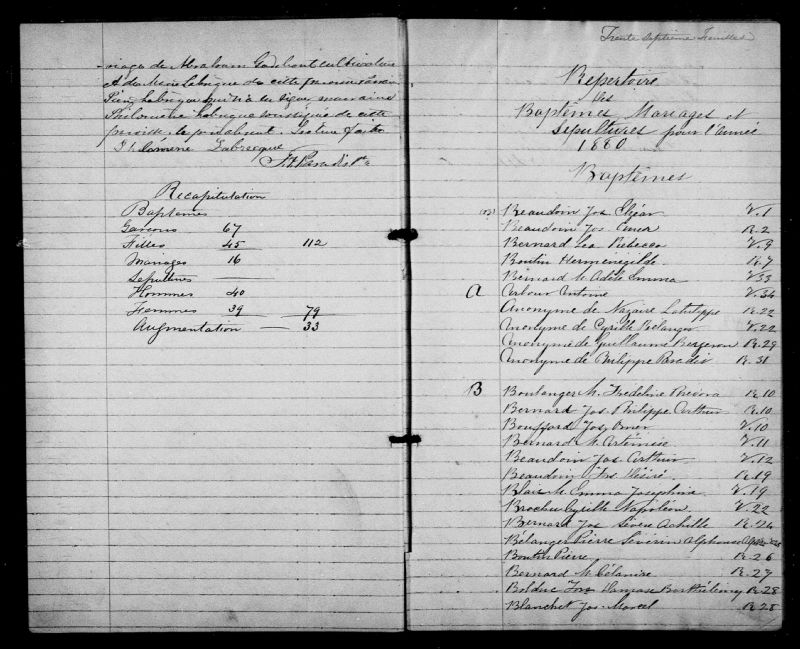 riage de Abraham Gaulhout cultivateur
et de Marie Labrique de cette paroisse. Parrain
Philomène Labrique de cette
paroisse le père absent. Lecture faite
Labrecque
Recapitulation
Baptemes
Garcons 67
Filles 45 112
Mariages 16
Sepultures
Hommes 40
Femmes 39 79
Augmentation 33
Trente Septieme Feuillet
Répertoire
des
Baptêmes Mariages et
Sépultures pour l'année
1880
Baptêmes
Beaudoin Jos. Elzéar V. 1
Beaudoin Jos. Omer R. 2
Bernard Lea Rebecca V. 9
Boutin Hermenégilde R. 7
Bernard M. Adèle Emma V. 33
A Arbour Antoine V. 34
Anonyme de Nazaire Latulippe R. 22
Anonyme de Cyrille Bélanger V. 22
Anonyme de Guillaume Bergeron R. 29
Anonyme de Philippe Paradis R. 31
B Boulanger M. Fredeline R. 10
Bernard Jos. Philippe Arthur R. 10
Boufford Jos. Omer V. 10
Bernard M. Artémise V. 11
Beaudoin Jos. Arthur V. 12
Beaudoin Jos. Désiré R. 19
Blais M. Emma Josephine V. 19
Brochu Cyrille Napoléon V. 22
Bernard Jos. Sévère Achille R. 24
Bélanger Pierre Sévérin Alphonse
Boutin Pierre R. 26
Bernard M. Célanire R. 27
Bolduc Jos. Damase Barthélemy R. 28
Blanchet Jos. Marcel R. 28